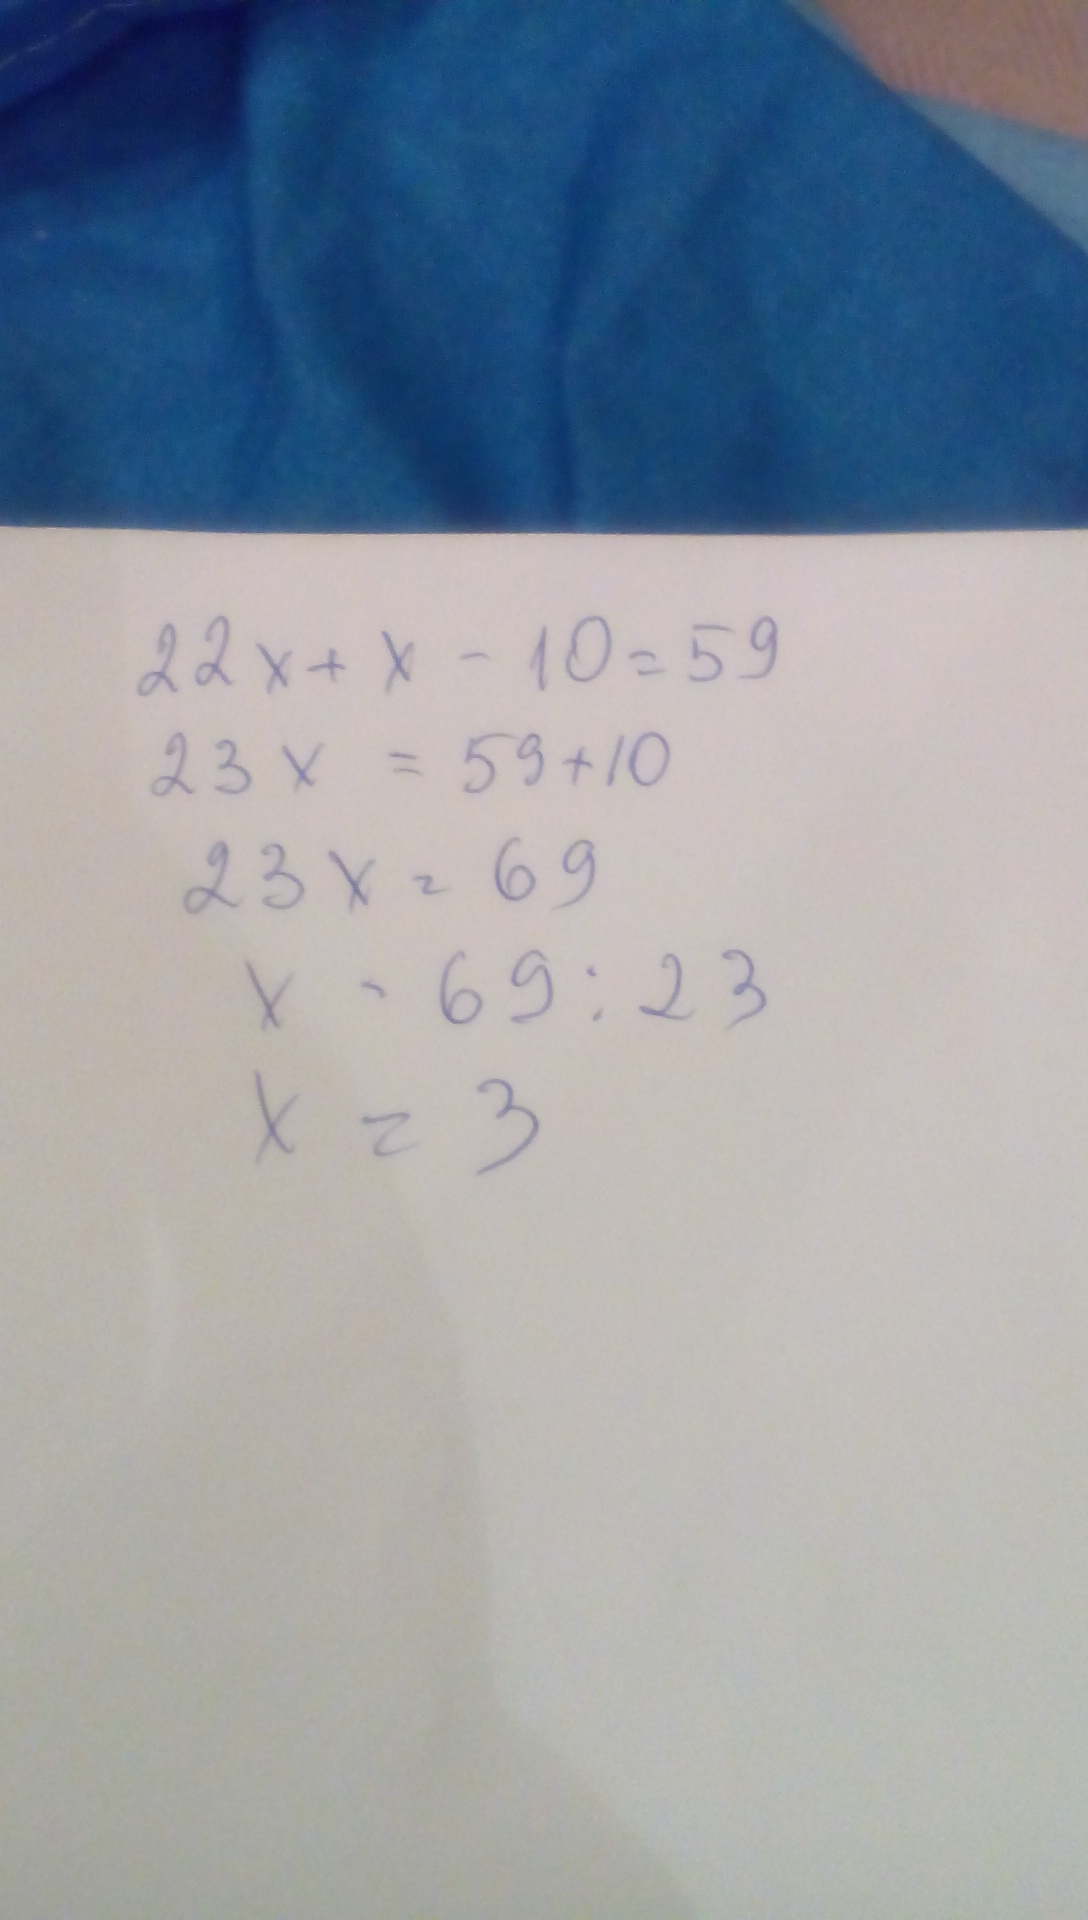 22x + x - 10 = 59
23x = 59 + 10
23x = 69
x - 69 : 23
x = 3